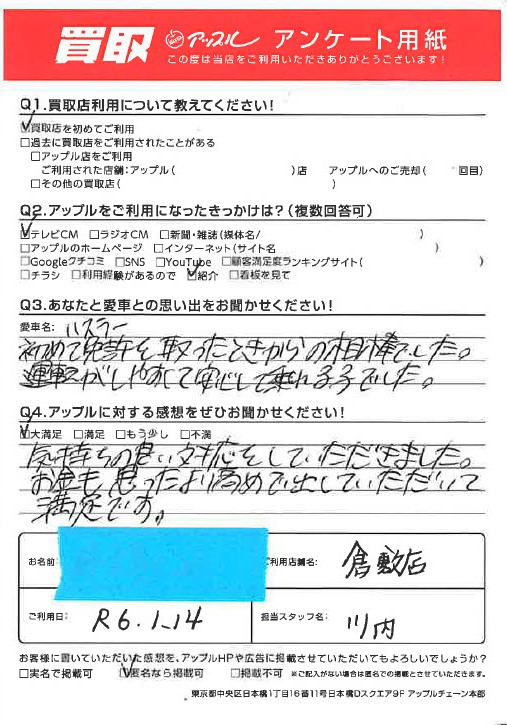 買取 アップル アンケート用紙
この度は当店をご利用いただきありがとうございます!
Q1.買取店利用について教えてください!
☑買取店を初めてご利用
□過去に買取店をご利用されたことがある
□アップル店をご利用
ご利用された店舗:アップル( )店 アップルへのご売却( 回目)
□その他の買取店( )
Q2.アップルをご利用になったきっかけは?(複数回答可)
☑テレビCM □ラジオCM □新聞・雑誌(媒体名/ )
□アップルのホームページ □インターネット(サイト名 )
□Googleクチコミ □SNS □YouTube □顧客満足度ランキングサイト( )
□チラシ □利用経験があるので ☑紹介 □看板を見て
Q3.あなたと愛車との思い出をお聞かせください!
愛車名: ハスラー
初めて免許を取ったときからの相棒でした。
運転がしやすくて安心して乗れる子でした。
Q4.アップルに対する感想をぜひお聞かせください!
☑大満足 □満足 □もう少し □不満
気持ちの良い対応をしていただきました。
お金も思ったより高めで出していただいて
満足です。
お名前 ご利用店舗名: 倉敷店
ご利用日: R6.1.14 担当スタッフ名: 川内
お客様に書いていただいた感想を、アップルHPや広告に掲載させていただいてもよろしいでしょうか?
□実名で掲載可 ☑匿名なら掲載可 □掲載不可 ※ご記入がない場合は匿名での掲載とさせていただきます。
東京都中央区日本橋1丁目16番11号日本橋Dスクエア9F アップルチェーン本部